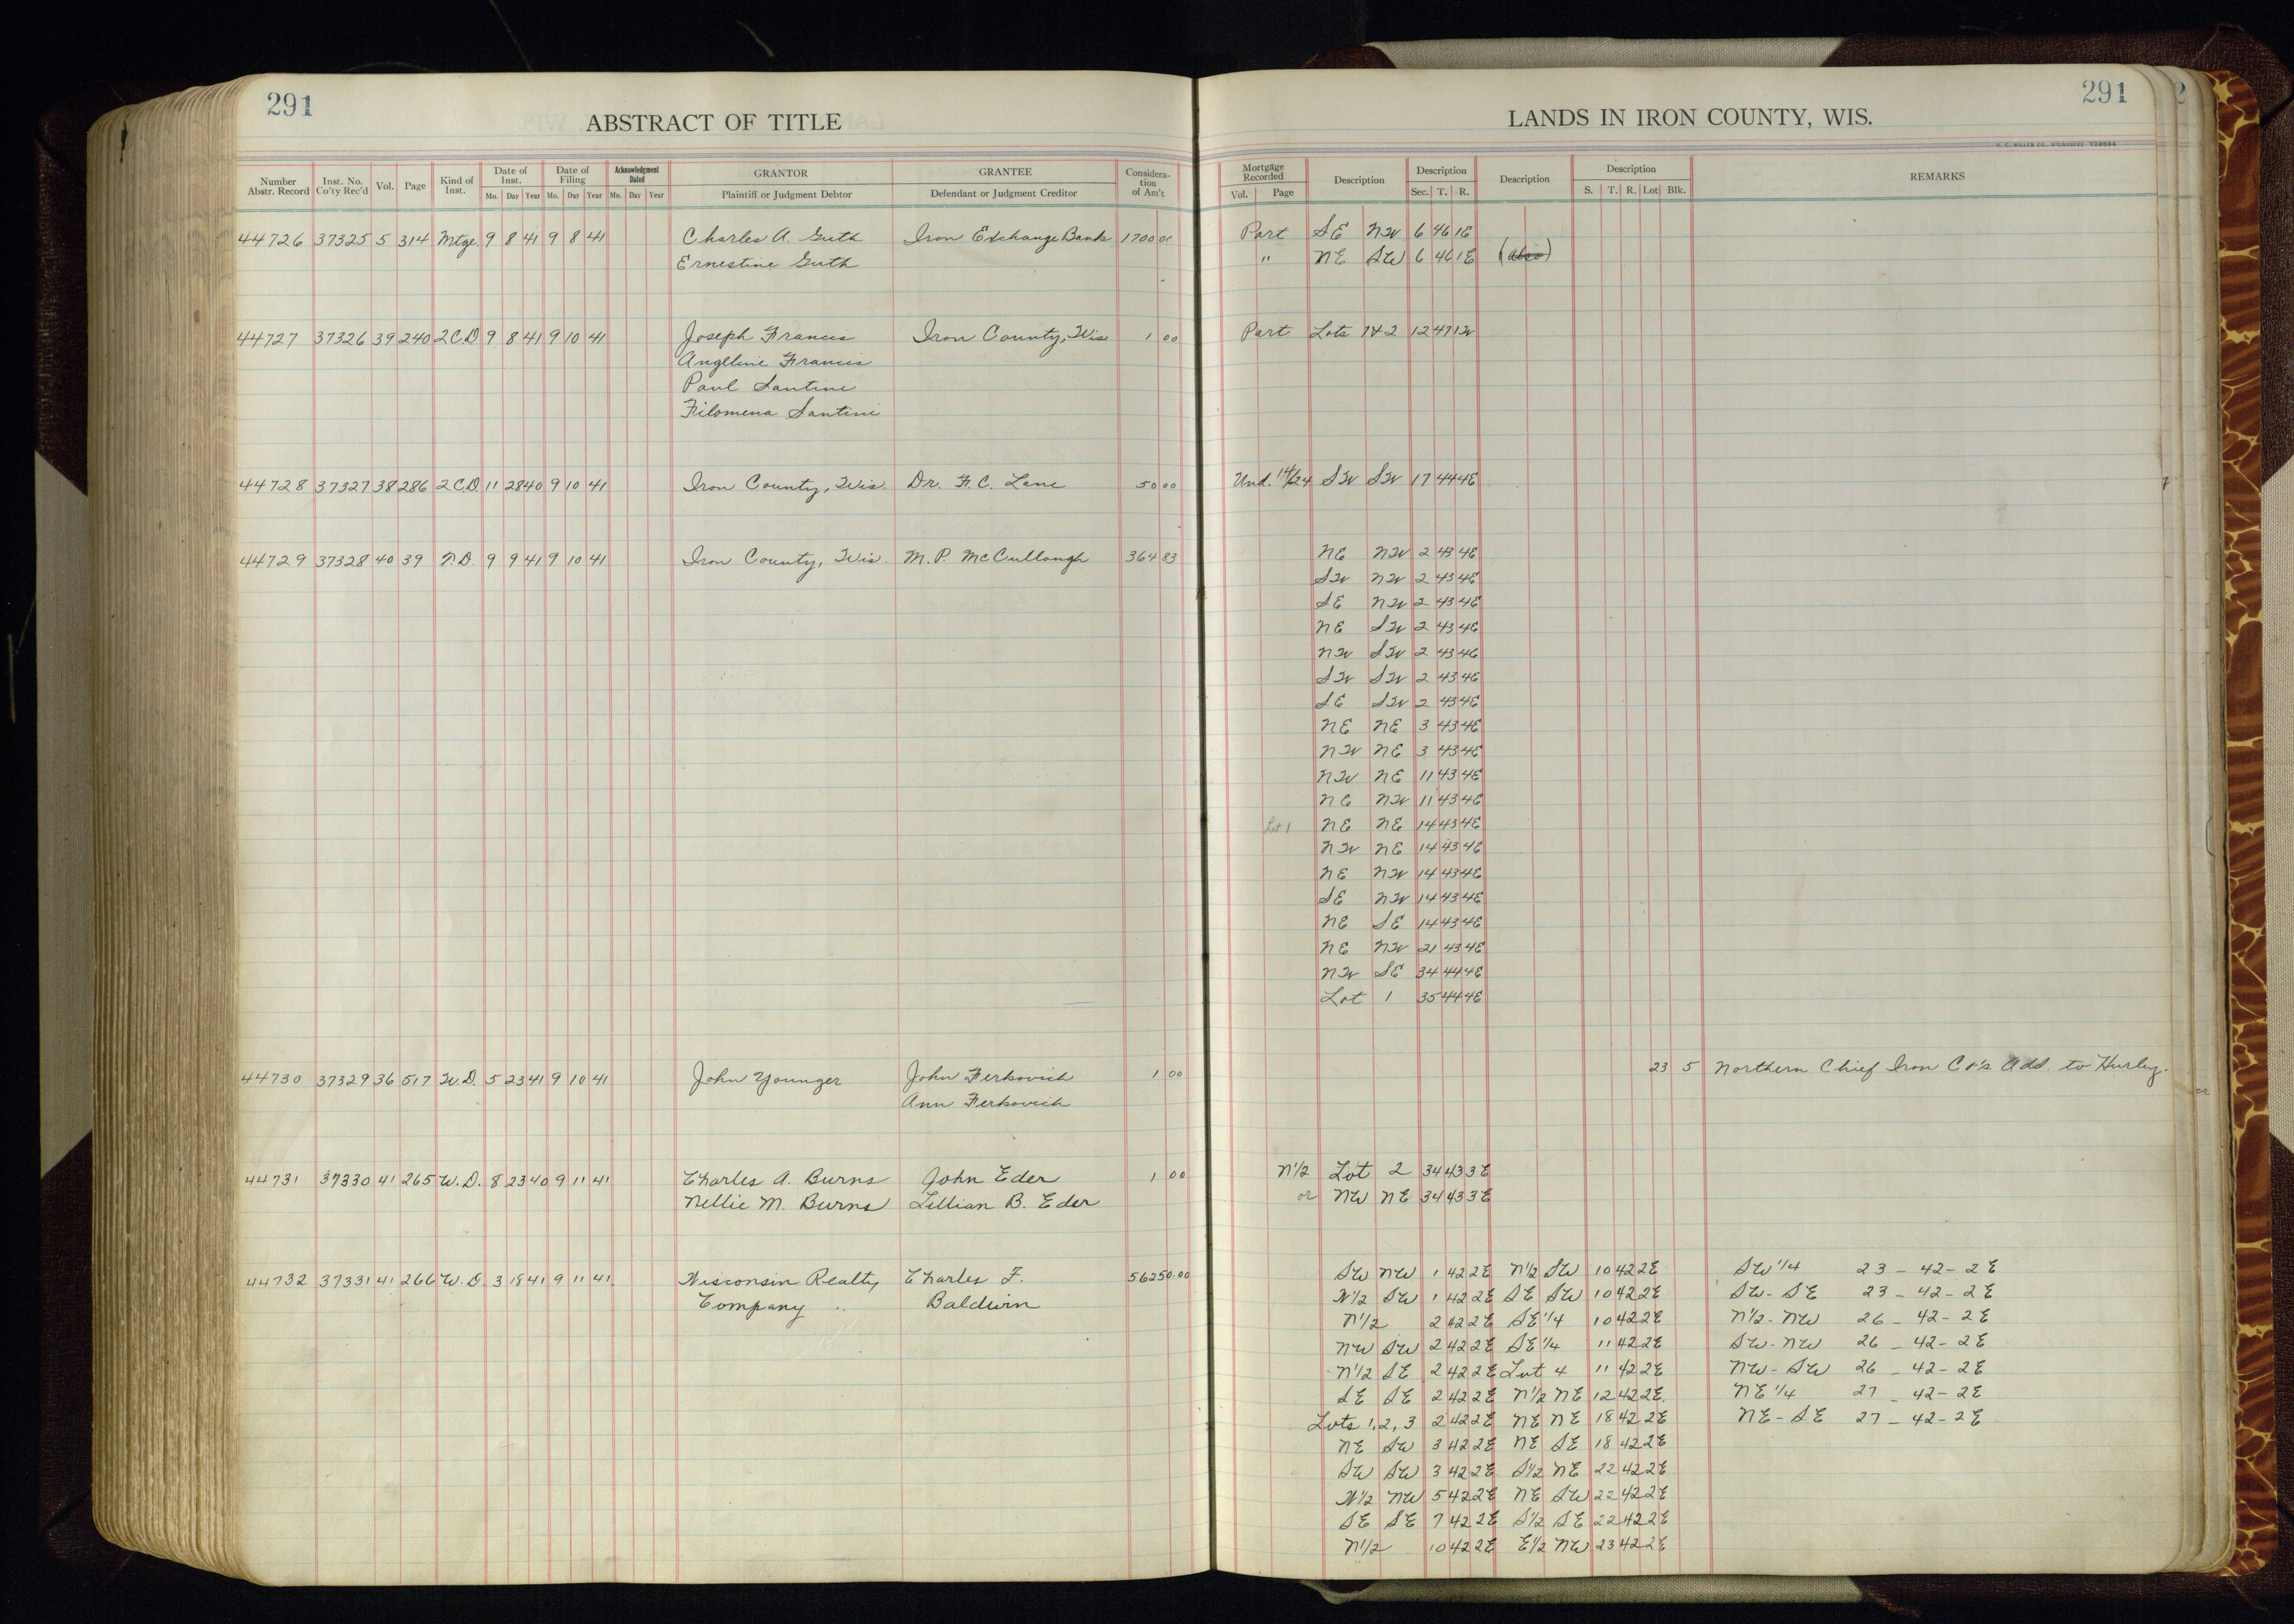 291
ABSTRACT OF TITLE
Number Abstr. Record Inst. No. Co'ty Rec'd Vol. Page Kind of Inst. Date of Inst. Date of Filing Acknowledgment Dated GRANTOR GRANTEE Consideration of Am't
Mo. Day Year Mo. Day Year Mo. Day Year Plaintiff or Judgment Debtor Defendant or Judgment Creditor
44726 37325 5 314 Mtge 9 8 41 9 8 41 Charles A. Guth Iron Exchange Bank 1700 00
Ernestine Guth
44727 37326 39 240 2 C.D 9 8 41 9 10 41 Joseph Francis Iron County, Wis 1 00
Angeline Francis
Paul Santini
Filomena Santini
44728 37327 38 286 2 C.D 11 28 40 9 10 41 Iron County, Wis. Dr. F. C. Lane 50 00
44729 37328 40 39 9 9 41 9 10 41 Iron County, Wis. M. P. McCullough 364 83
44730 37329 36 517 W.D. 5 23 41 9 10 41 John Younger John Ferkovich 1 00
Ann Ferkovich
44731 37330 41 265 W.D. 8 23 40 9 11 41 Charles A. Burns John Eder 1 00
Nellie M. Burns Lillian B. Eder
44732 37331 41 266 W.D. 3 18 41 9 11 41 Wisconsin Realty Charles F. 56250.00
Company Baldwin
291
LANDS IN IRON COUNTY, WIS.
H. C. MILLER CO., MILWAUKEE V39694
Mortgage Recorded Description Description Description Description REMARKS
Vol. Page Sec. T. R. S. T. R. Lot Blk.
Part SE NW 6 46 1E
" NE SW 6 46 1E (also)
Part Lots 1&2 12 47 1W
Und. 14/24 SW SW 17 44 4E
NE NW 2 43 4E
SW NW 2 43 4E
SE NW 2 43 4E
NE SW 2 43 4E
NW SW 2 43 4E
SW SW 2 43 4E
SE SW 2 43 4E
NE NE 3 43 4E
NW NE 3 43 4E
NW NE 11 43 4E
NE NW 11 43 4E
Lot 1 NE NE 14 43 4E
NW NE 14 43 4E
NE NW 14 43 4E
SE NW 14 43 4E
NE SE 14 43 4E
NE NW 21 43 4E
NW SE 34 44 4E
Lot 1 35 44 4E
23 5 Northern Chief Iron Co's Add. to Hurley.
N1/2 Lot 2 34 43 3E
or NW NE 34 43 3E
SW NW 1 42 2E N1/2 SW 10 42 2E SW 1/4 23 - 42 - 2E
W1/2 SW 1 42 2E SE SW 10 42 2E SW - SE 23 - 42 - 2E
N1/2 2 42 2E SE 1/4 10 42 2E N1/2 - NW 26 - 42 - 2E
NW SW 2 42 2E SE 1/4 11 42 2E SW - NW 26 - 42 - 2E
N1/2 SE 2 42 2E Lot 4 11 42 2E NW - SW 26 - 42 - 2E
SE SE 2 42 2E N1/2 NE 12 42 2E. NE 1/4 27 - 42 - 2E
Lots 1, 2, 3 2 42 2E NE NE 18 42 2E NE - SE 27 - 42 - 2E
NE SW 3 42 2E NE SE 18 42 2E
SW SW 3 42 2E S1/2 NE 22 42 2E
W1/2 NW 5 42 2E NE SW 22 42 2E
SE SE 7 42 2E S1/2 SE 22 42 2E
N1/2 10 42 2E E1/2 NW 23 42 2E